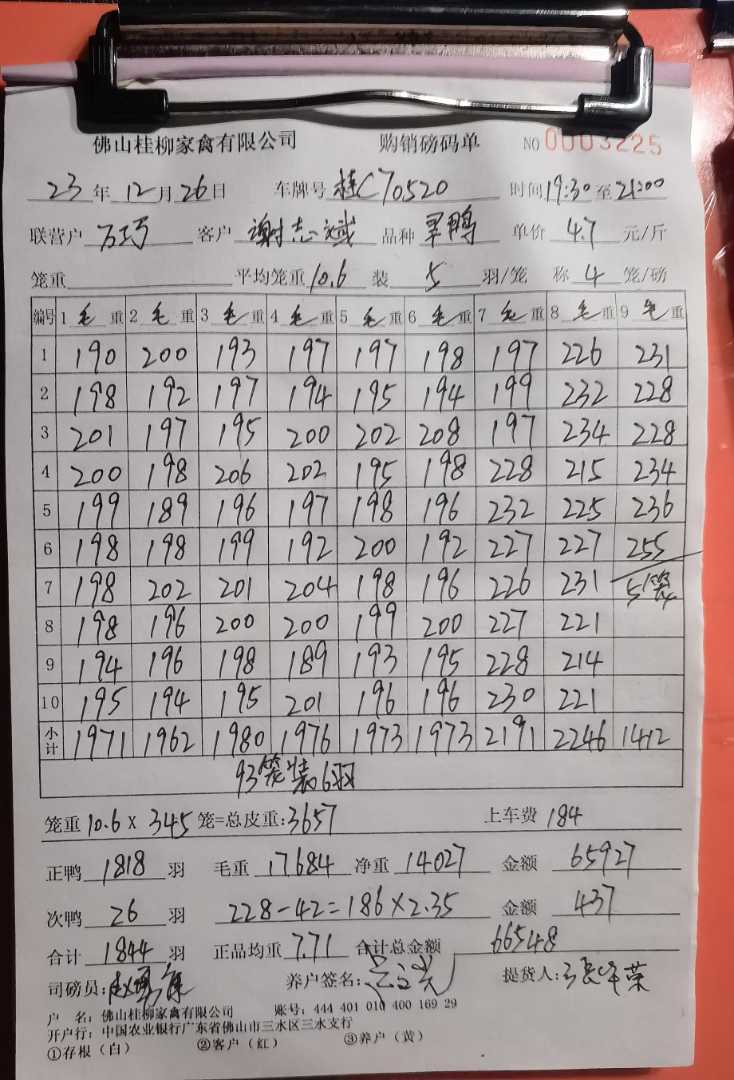 佛山桂柳家禽有限公司 购销磅码单 NO 0003225
23 年 12 月 26 日 车牌号 桂C70520 时间 19:30 至 21:00
联营户 客户 谢志斌 品种 单价 4.7 元/斤
笼重 平均笼重 10.6 装 5 羽/笼 称 4 笼/磅
编号 1 毛 重 2 毛 重 3 毛 重 4 毛 重 5 毛 重 6 毛 重 7 毛 重 8 毛 重 9 毛 重
1 190 200 193 197 197 198 197 226 231
2 198 192 197 194 195 194 199 232 228
3 201 197 195 200 202 208 197 234 228
4 200 198 206 202 195 198 228 215 234
5 199 189 196 197 198 196 232 225 236
6 198 198 199 192 200 192 227 227 255
7 198 202 201 204 198 196 226 231 5笼
8 198 196 200 200 199 200 227 221
9 194 196 198 189 193 195 228 214
10 195 194 195 201 196 196 230 221
小计 1971 1962 1980 1976 1973 1973 2191 2246 1412
93笼装6羽
笼重 10.6 × 345 笼=总皮重: 3657 上车费 184
正鸭 1818 羽 毛重 17684 净重 14027 金额 65927
次鸭 26 羽 228-42=186×2.35 金额 437
合计 1844 羽 正品均重 7.71 合计总金额 66548
司磅员: 养户签名: 提货人:
户 名: 佛山桂柳家禽有限公司 账号: 444 401 010 400 169 29
开户行: 中国农业银行广东省佛山市三水区三水支行
①存根(白) ②客户(红) ③养户(黄)